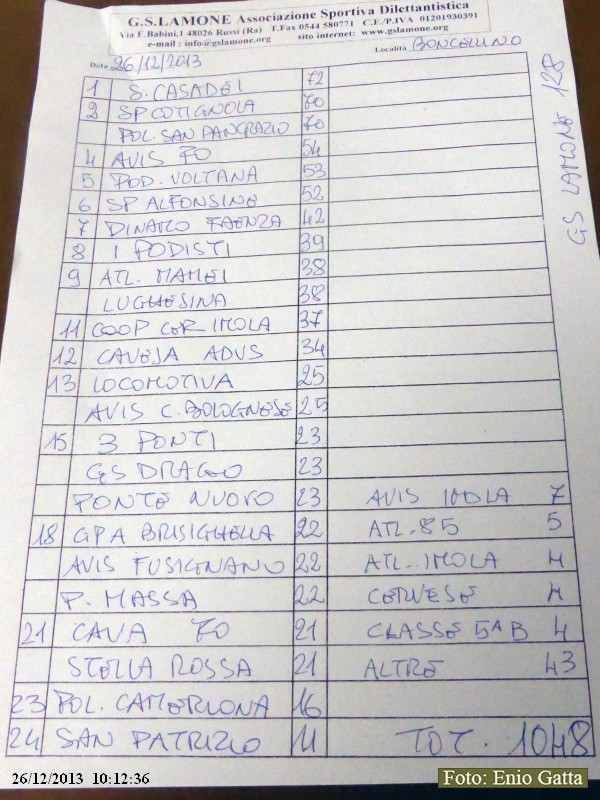 G.S.LAMONE Associazione Sportiva Dilettantistica
Via E.Babini,1 48026 Russi (Ra) T.Fax 0544 580771 C.F./P.IVA 01201930391
e-mail : info@gslamone.org sito internet: www.gslamone.org
Data 26/12/2013 Località BONCELLINO
1 S. CASADEI 72
2 SP COTIGNOLA 70
POL. SAN PANCRAZIO 70
4 AVIS 70 54
5 POD. VOLTANA 53
6 SP ALFONSINE 52
7 DINAMO FAENZA 42
8 I PODISTI 39
9 ATL. MAMELI 38
LUGHESINA 38
11 COOP CER IMOLA 37
12 CAVEJA ADVS 34
13 LOCOMOTIVA 25
AVIS C. BOLOGNESE 25
15 3 PONTI 23
GS DRAGO 23
PONTE NUOVO 23 AVIS IMOLA 7
18 GPA BRISIGHELLA 22 ATL. 85 5
AVIS FUSIGNANO 22 ATL. IMOLA 4
P. MASSA 22 CERVESE 4
21 CAVA 70 21 CLASSE 5ª B 4
STELLA ROSSA 21 ALTRE 43
23 POL. CAMERLONA 16
24 SAN PATRIZIO 11 TOT. 1048
GS LAMONE 128
26/12/2013 10:12:36
Foto: Enio Gatta